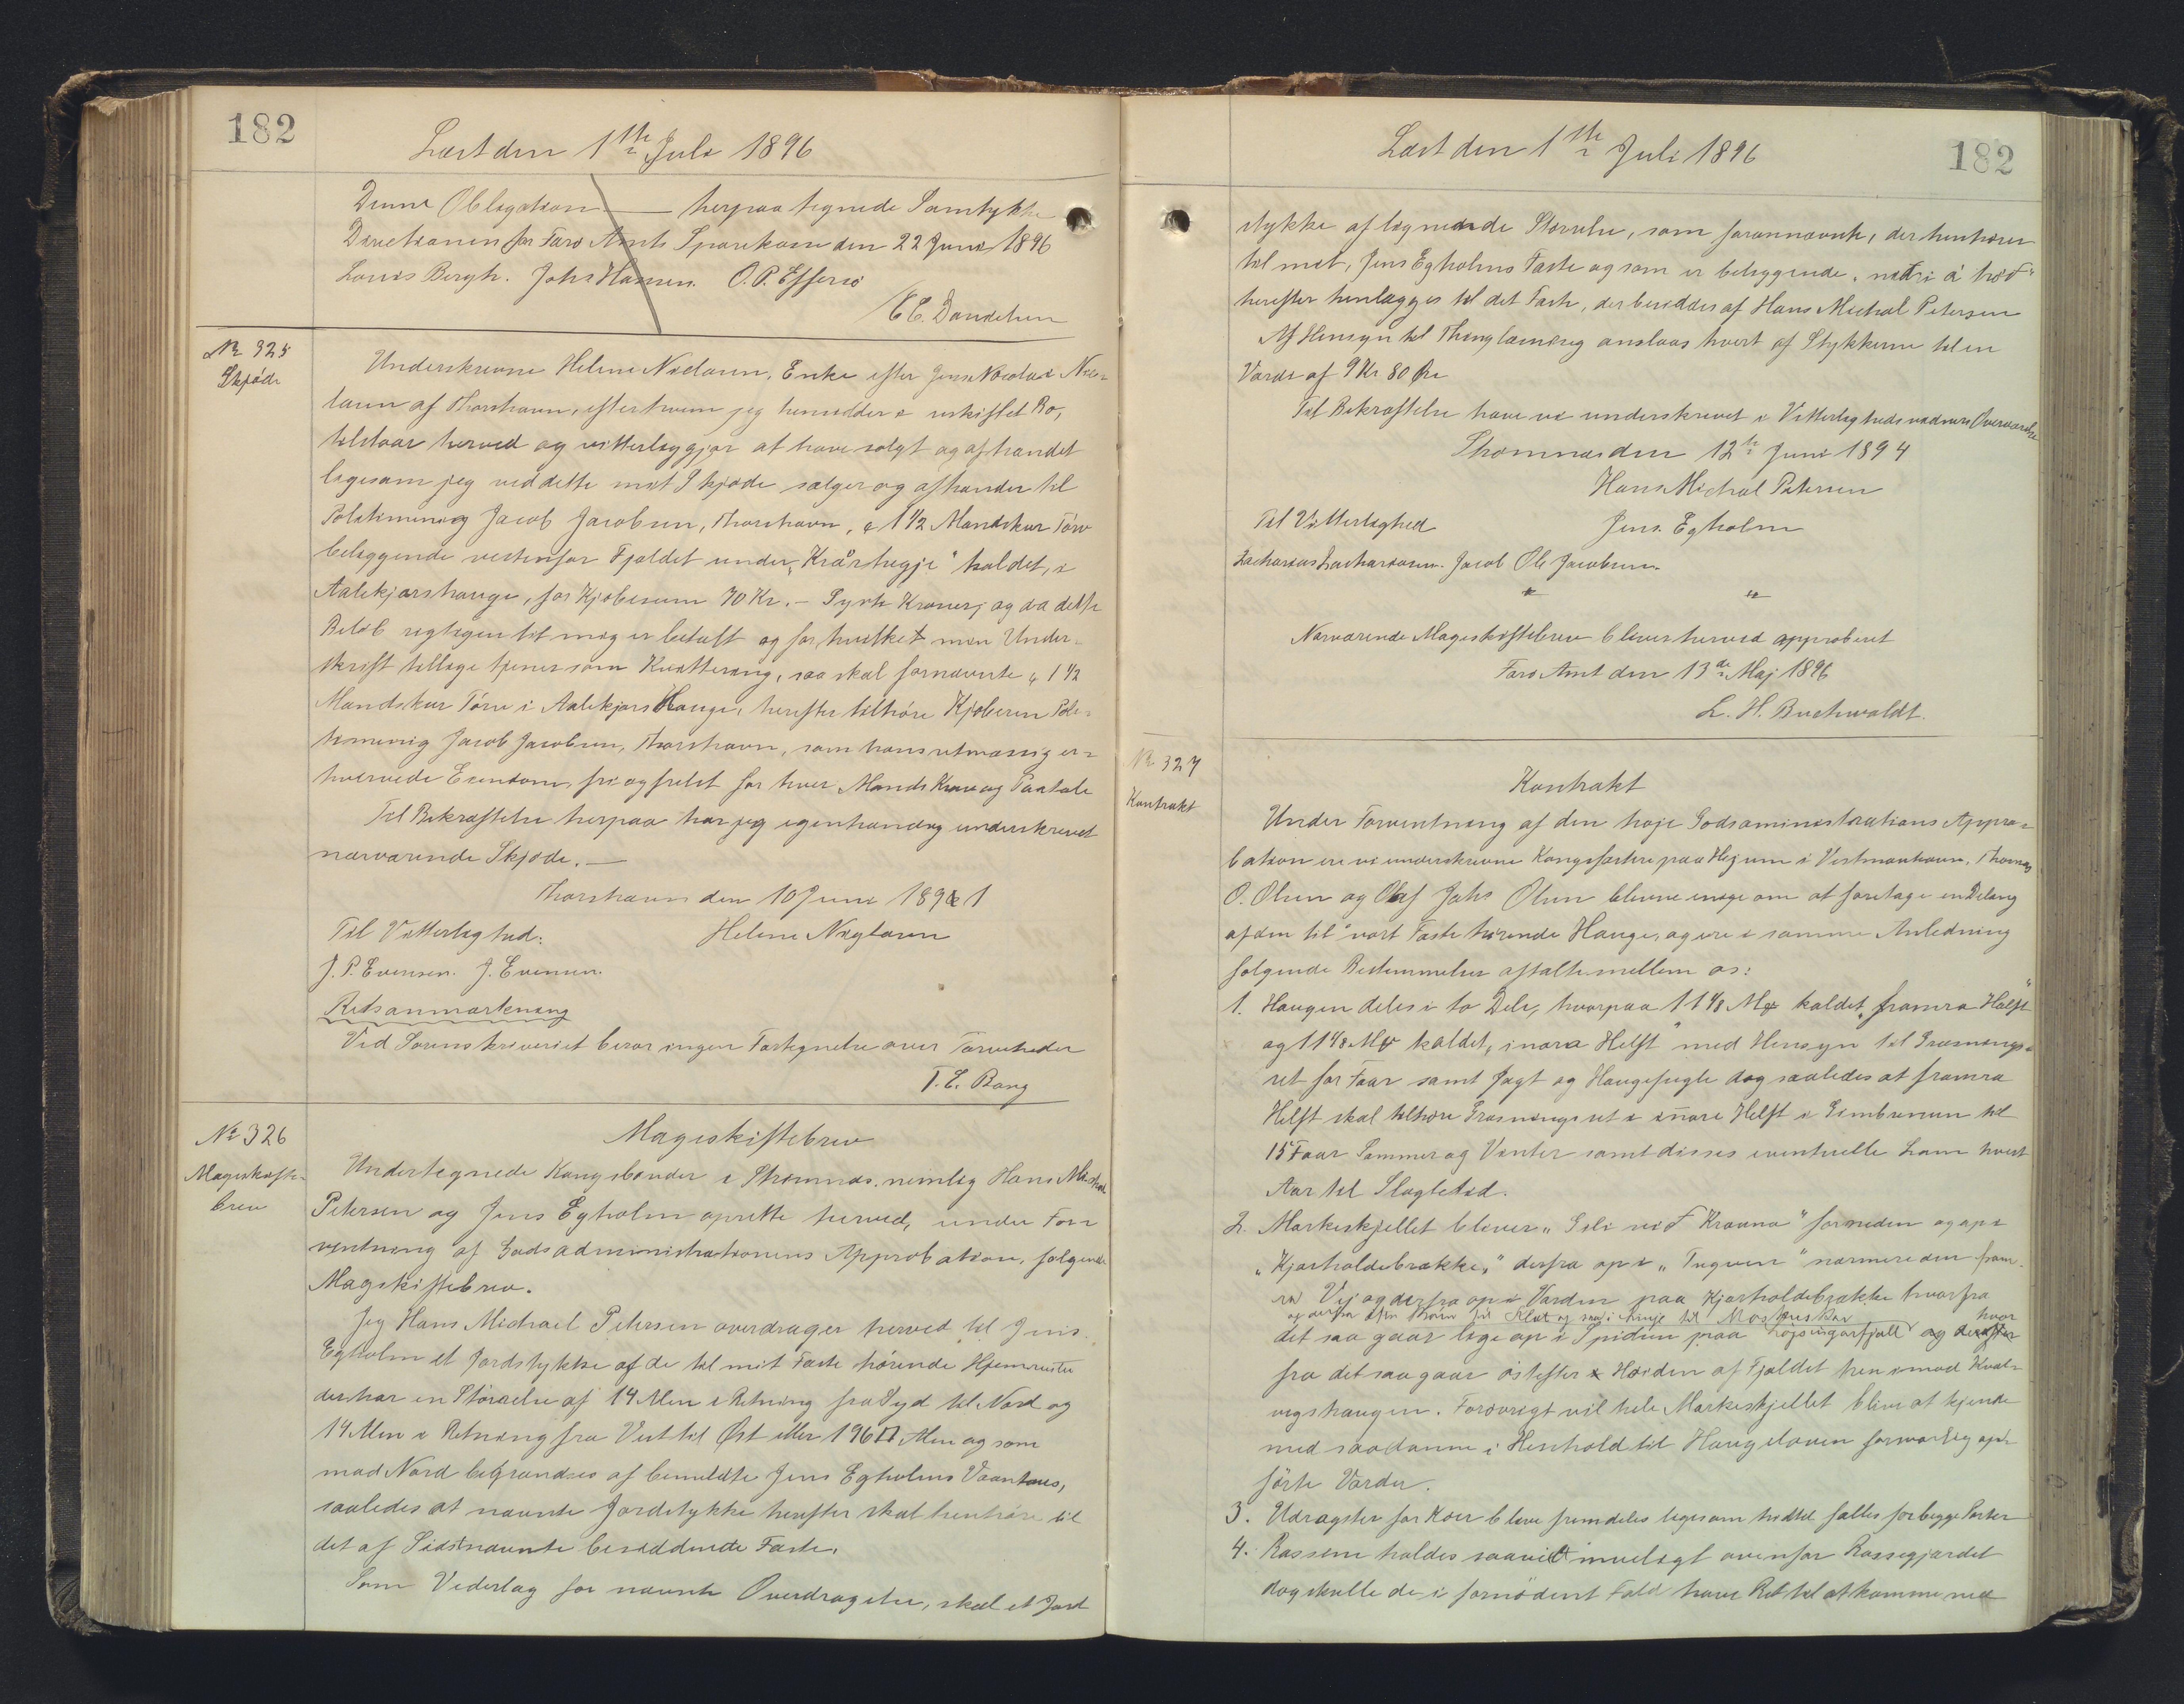 182
Læst den 1ste Juli 1896
Denne Obligation — herpaa tegnede Samtykke
Directionen for Færø Amts Sparekasse den 22 Juni 1896
Louis Bergh. Johs Hansen. O. P. Effersø
E C. Danielsen
№ 325
Skjøde
Underskrevne Helene Niclasen, Enke efter Jens Nicolai Nic=
lasen af Thorshavn, efter hvem jeg hensidder i uskiftet Bo,
tilstaar herved og vitterliggjør at have solgt og afhændet
ligesom jeg ved dette mit Skjøde sælger og afhænder til
Politimenig Jacob Jacobsen, Thorshavn, 1 1/2 Mandskur Tørv
beliggende vestenfor Fjeldet under, kaldet, i
Aalekjærshauge, for Kjøbesum 70 Kr. – Syvti Kroner; og da dette
Beløb rigtigen til mig er betalt og for hvilket min Under-
skrift tillige tjener som Kvittering, saa skal fornævnte 1 1/2
Mandskur Tørv i Aalekjærs Hauge, herefter tilhøre Kjøberen Poli=
timenig Jacob Jacobsen, Thorshavn, som hans retmæssig er=
hvervede Eiendom, fri og frelst for hver Mands Krav og Paatale
Til Bekræftelse herpaa har jeg egenhændig underskrevet
nærværende Skjøde. —
Thorshavn den 10 Juni 1891
Til Vitterlighed: Helene Niclasen
J. P. Evensen. J. Evensen.
Retsanmærkning
Ved Sorenskriveriet beror ingen Fortegnelse over Tørveheder
T. E. Bang
№ 326
Mageskifte-
brev
Mageskiftebrev
Undertegnede Kongsbønder i Strømnæs, nemlig Hans Michal
Petersen og Jens Egholm oprette herved, under For=
ventning af Godsadministrationens Approbation, følgende
Magskiftebrev.
Jeg Hans Michael Petersen overdrager herved til Jens
Egholm et Jordstykke af de til mit Fæste hørende Hjemmerester
der har en Størrelse af 14 Alen i Retning fra Syd til Nord og
14 Alen i Retning fra Vest til Øst eller 196 □ Alen og som
mod Nord begrændses af bemeldte Jens Egholms Vaanhus,
saaledes at nævnte Jordstykke herefter skal henhøre til
det af Sidstnævnte besiddende Fæste.
Som Vederlag for nævnte Overdragelse, skal et Jord
182
Læst den 1ste Juli 1896
stykke af lignende Størrelse, som forannævnte, der henhører
til mit, Jens Egholms Fæste og som er beliggende "niðri á trøð"
herefter henlægges til det Fæste, der besiddes af Hans Michal Petersen
Af Hensyn til Thinglæsning anslaas hvert af Stykkerne til en
Værdi af 9 Kr 80 Øre
Til Bekræftelse have vi underskrevet i Vitterlighedsvidners Overværelse
Strømnæs den 12te Juni 1894
Hans Michal Petersen
Til Vitterlighed Jens Egholm
Zacharias Zachariasen. Jacob Ole Jacobsen.
Nærværende Mageskiftebrev bliver herved approberet
Færø Amt den 13de Maj 1896
L. H. Buchwaldt.
№ 327
Kontrakt
Kontrakt
Under Forventning af den høje Godsaministrations Appro=
bation ere vi underskrevne Kongsfæstere paa Hejgum i Vestmanhavn, Thomas
O. Olsen og Olaf Johs Olsen blevne enige om at foretage en Deling
af den til vort Fæste hørende Hauge, og ere i samme Anledning
følgende Bestemmelser aftalte mellem os:
1. Haugen deles i to Dele, hvorpaa 11 1/8 Mk kaldet "framra Helft"
og 11 1/8 Mk kaldet "inara Helft" med Hensyn til Græsnings=
ret for Faar samt Jagt og Haugefugle dog saaledes at framra
Helft skal tilhøre Græsningsret i inare Helft i Gimbranum til
15 Faar Sommer og Vinter samt disses eventuelle Lam hvert
Aar til Slagtetid.
2. Markeskjellet bliver "Gili við Kraana" forneden og op i
"Kjørholdebrække," derfra op i "Tugven" nærmere den fram-
ra Vej og derfra op i Varden paa Kjørholdebrække hvorfra
og derfra efter til og saa i til hvor
det saa gaar lige op i Spiden paa
fra det saa gaar østefter i Høiden af Fjeldet hen imod Kval=
vigshaugen. Forøvrigt vil hele Markeskjellet blive at kjende
med saadanne i Henhold til Haugeloven forsvarlig op=
førte Varder.
3. Udragster for Køer blive fremdeles ligesom hidtil fælles for begge Parter
4. Rossene holdes saavidt muligt ovenfor Rossegjærdet
dog skulle de i fornødent Fald have Ret til at komme ned